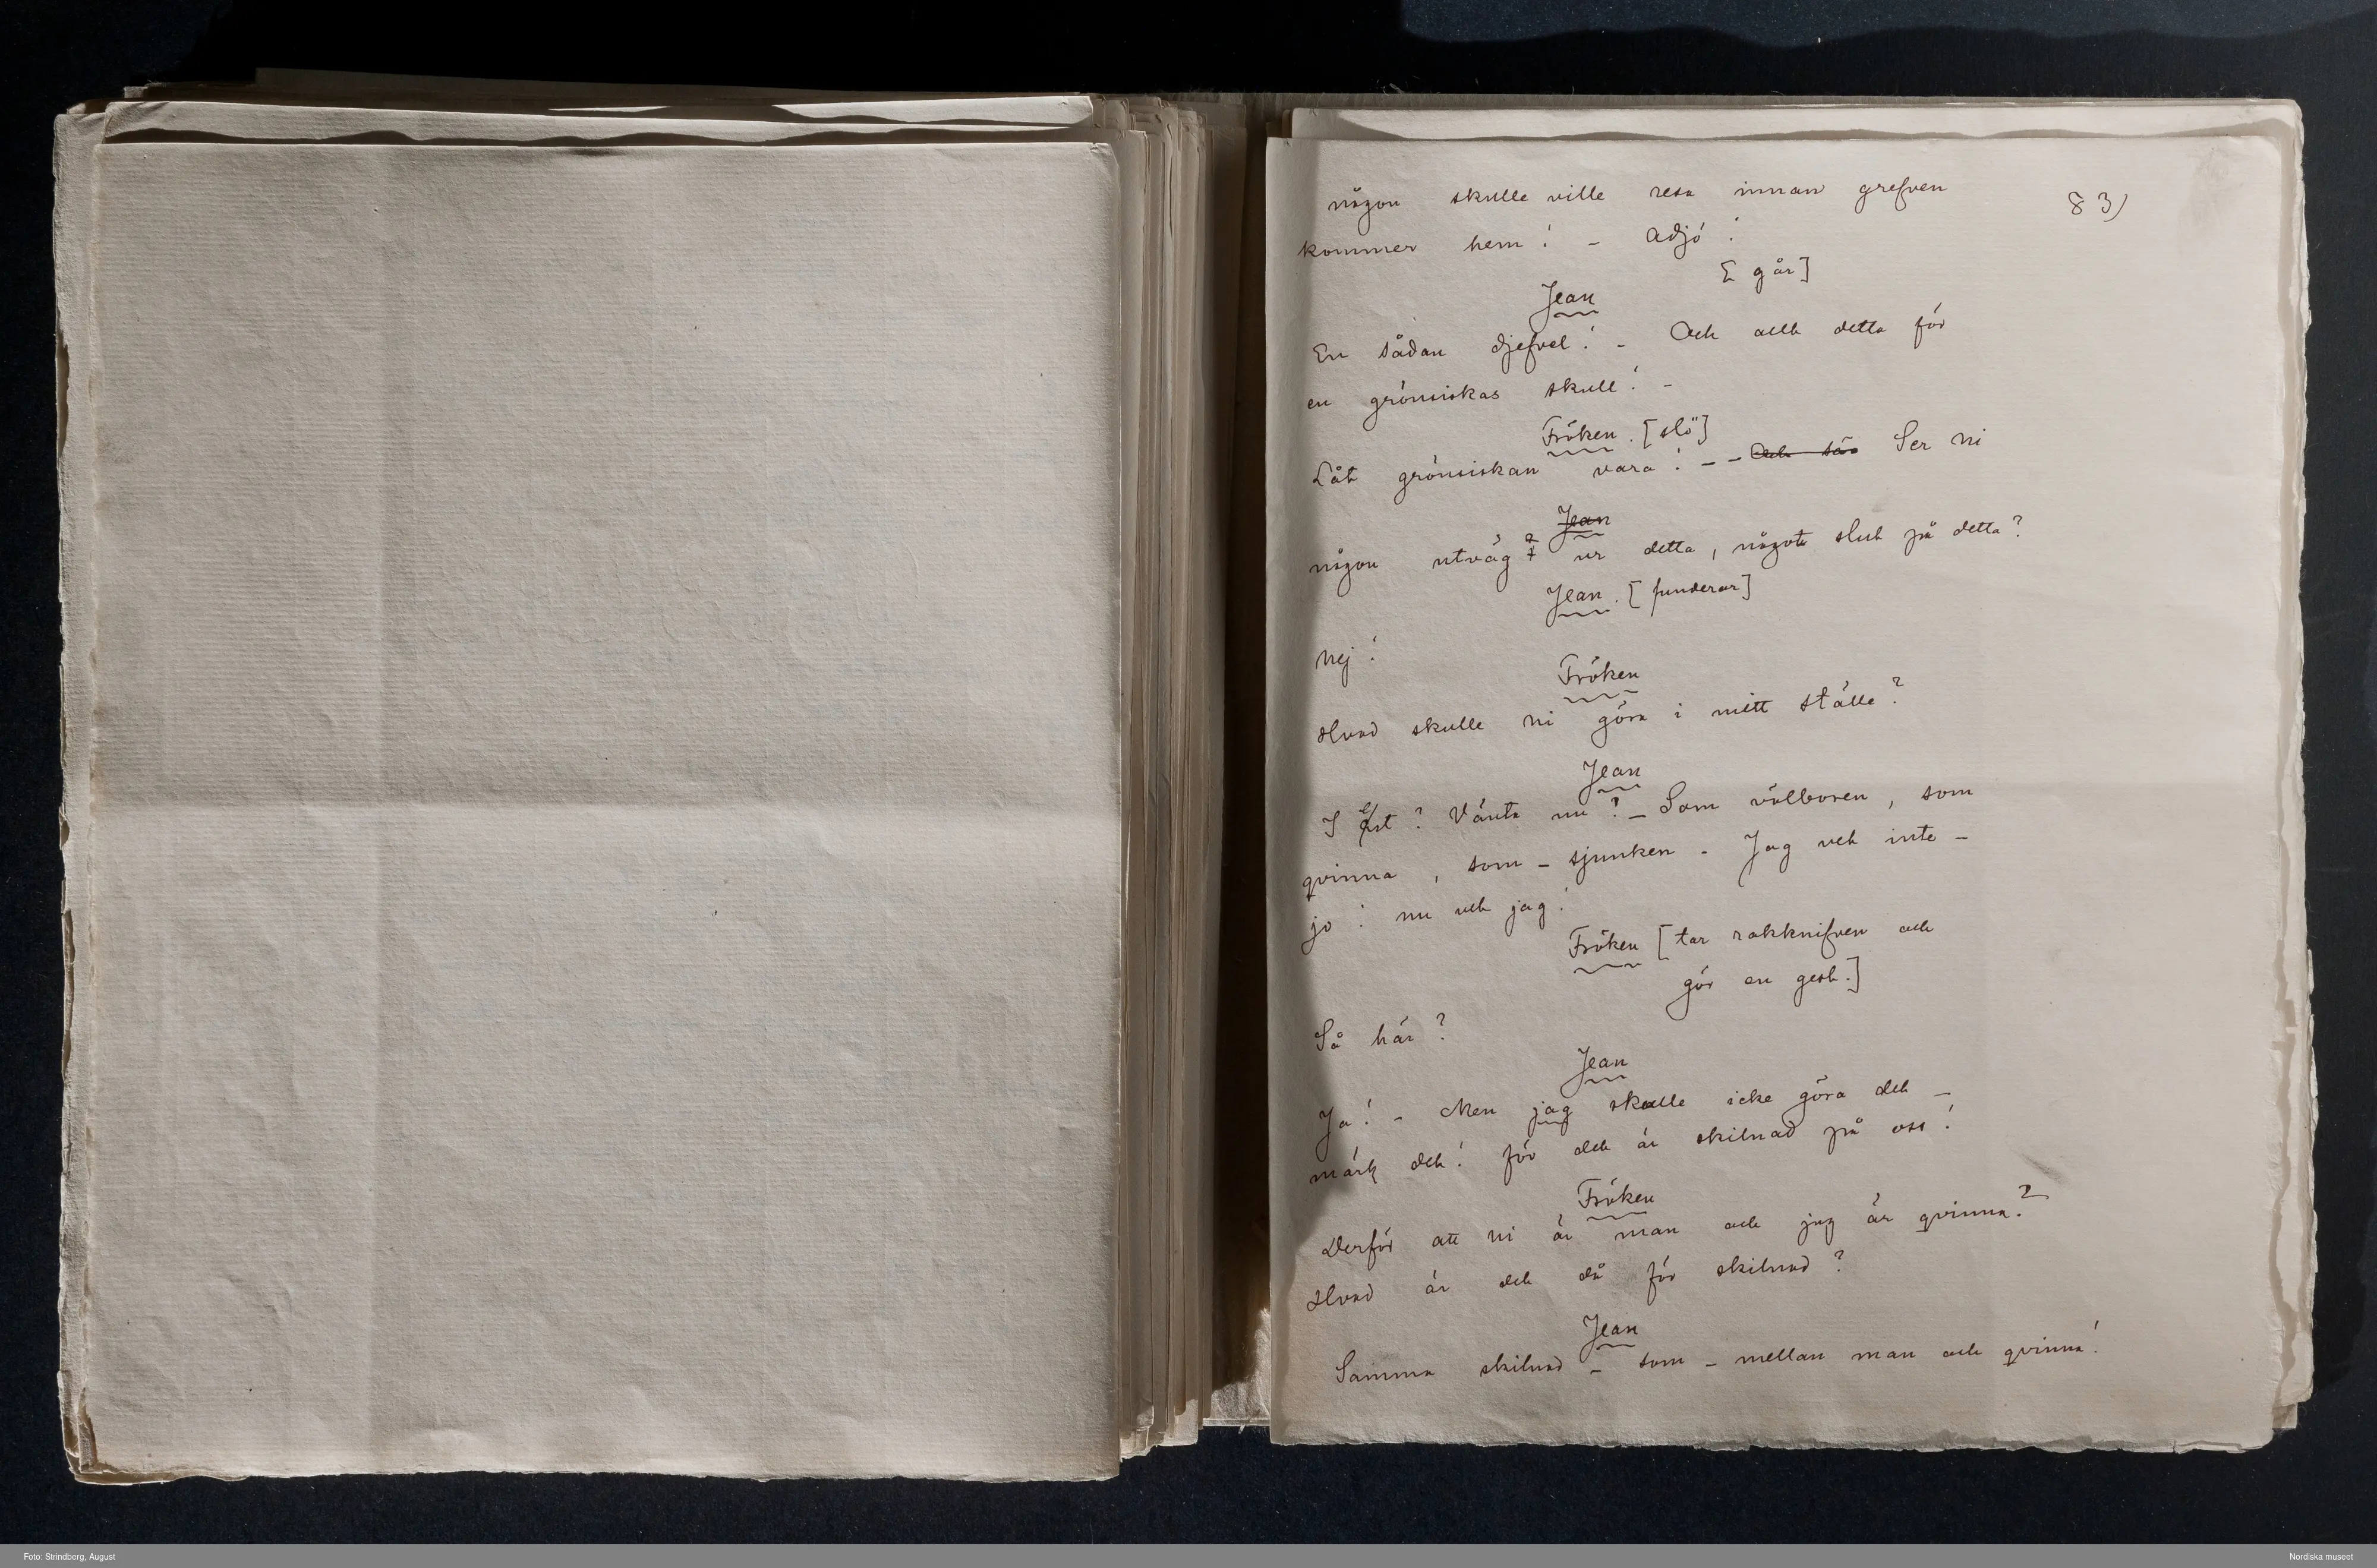 någon skulle ville resa innan grefven
83)
kommer hem! - Adjö!
[går]
Jean
En sådan djefvel! - Och allt detta för
en grönsiskas skull! -
Fröken. [slö]
Låt grönsiskan vara! - - Och sä Ser ni
Jean
någon utväg ur detta, något slut på detta?
Jean. [funderar]
Nej!
Fröken
Hvad skulle ni göra i mitt ställe?
Jean
I ert? Vänta nu! - Som välboren, som
qvinna, som - sjunken - Jag vet inte -
jo! nu vet jag!
Fröken [tar rakknifven och
gör en gest.]
Så här?
Jean
Ja! - Men jag skulle icke göra det -
märk det! för det är skilnad på oss!
Fröken
Derför att ni är man och jag är qvinna?
Hvad är det då för skilnad?
Jean
Samma skilnad - som - mellan man och qvinna!
Foto: Strindberg, August
Nordiska museet